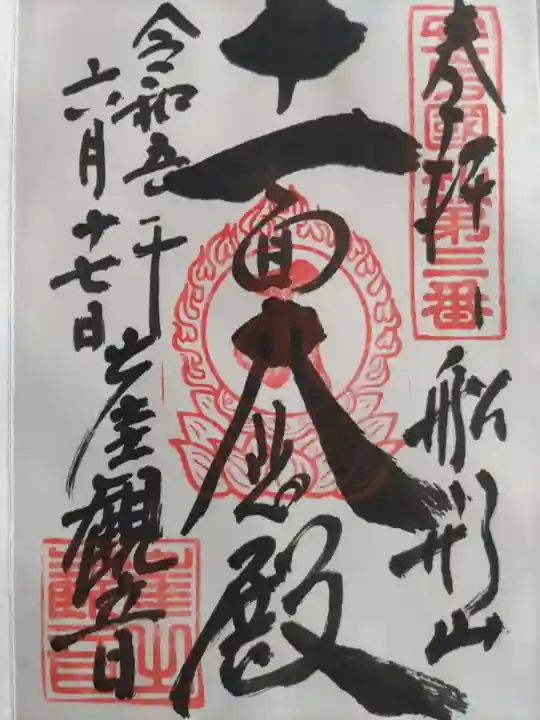 奉拝
船形山
安房國札第三番
十一面大悲殿
令和五年
六月十七日
崖観音